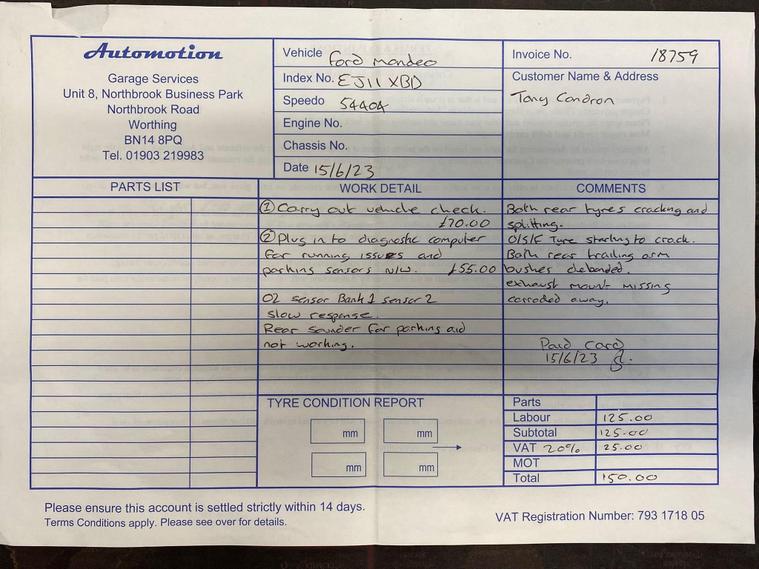 Automotion
Garage Services
Unit 8, Northbrook Business Park
Northbrook Road
Worthing
BN14 8PQ
Tel. 01903 219983
Vehicle Ford mondeo
Index No. EJ11 XBD
Speedo 54404
Engine No.
Chassis No.
Date 15/6/23
Invoice No. 18759
Customer Name & Address
Tony Condron
PARTS LIST
WORK DETAIL
① Carry out vehicle check.
£70.00
② Plug in to diagnostic computer
for running issues and
parking sensors N/W. £55.00
O2 sensor Bank 1 sensor 2
slow response.
Rear sounder for parking aid
not working.
COMMENTS
Both rear tyres cracking and
splitting.
O/S/F Tyre starting to crack.
Both rear trailing arm
bushes debonded.
exhaust mount missing
corroded away.
Paid card
15/6/23
TYRE CONDITION REPORT
mm mm
mm mm
Parts
Labour 125.00
Subtotal 125.00
VAT 20% 25.00
MOT
Total 150.00
Please ensure this account is settled strictly within 14 days.
Terms Conditions apply. Please see over for details.
VAT Registration Number: 793 1718 05